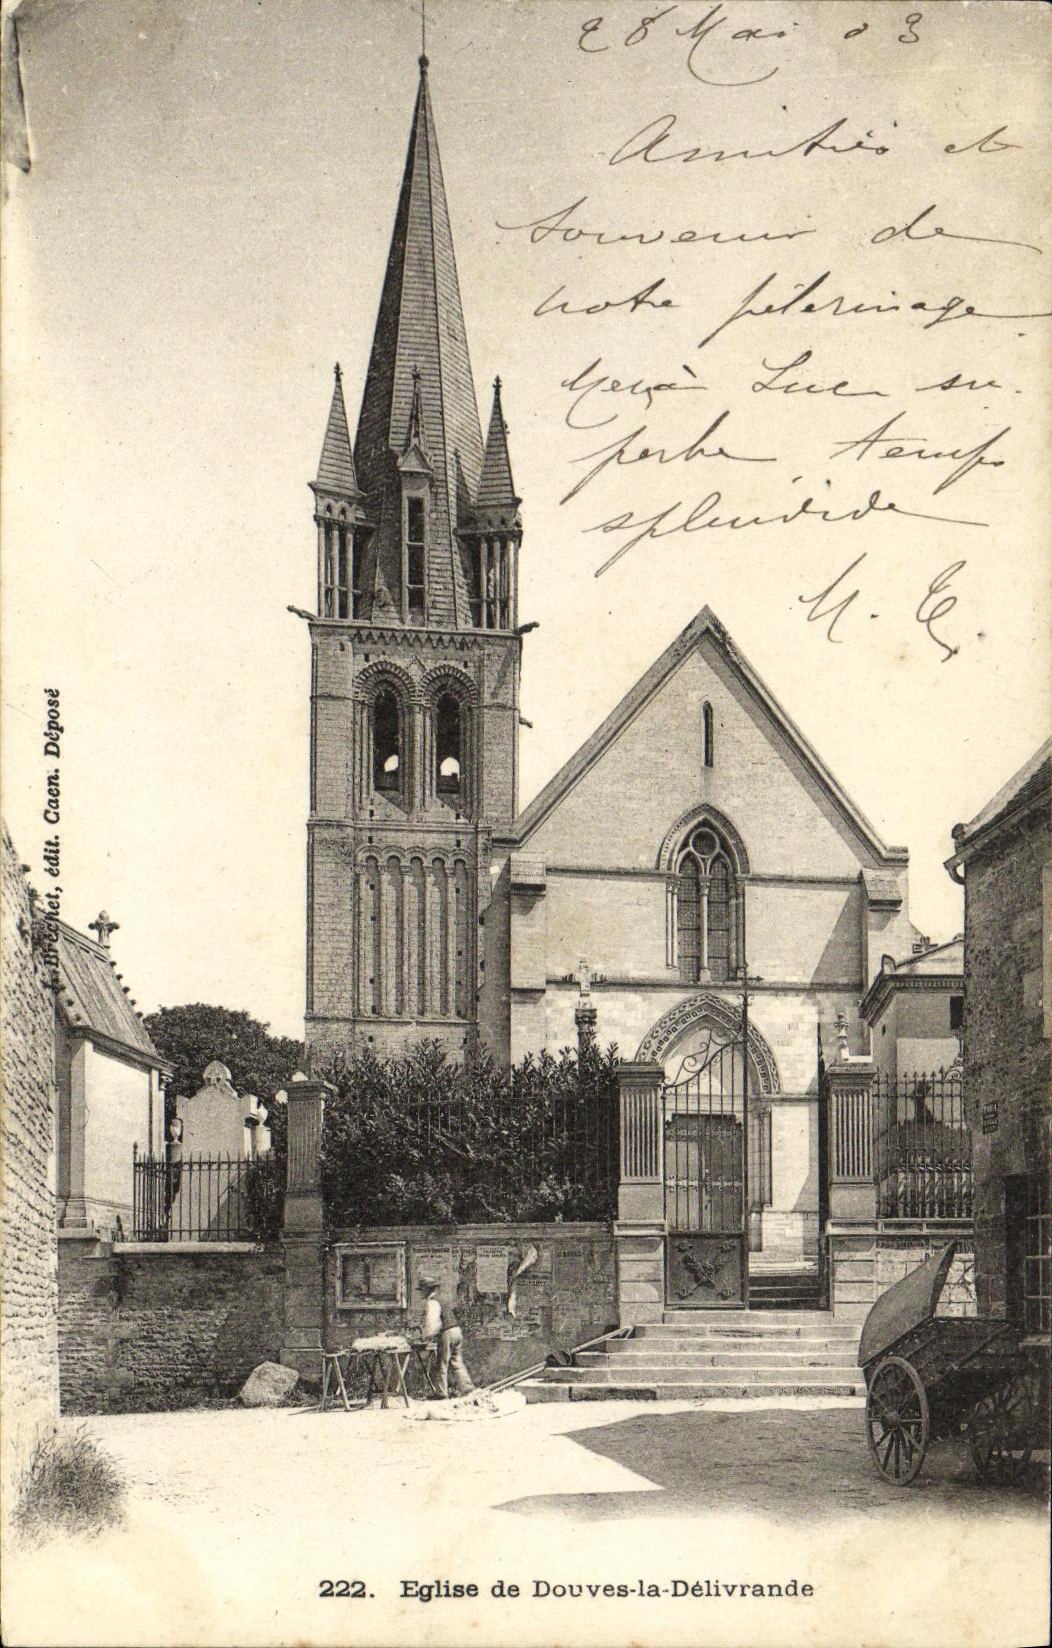 28 Mai 03
Amitiés et
souvenir de
notre pélerinage
Luc su
perbe temps
splendide
M. E.
L. Bréchet, édit. Caen. Déposé
222. Eglise de Douves-la-Délivrande